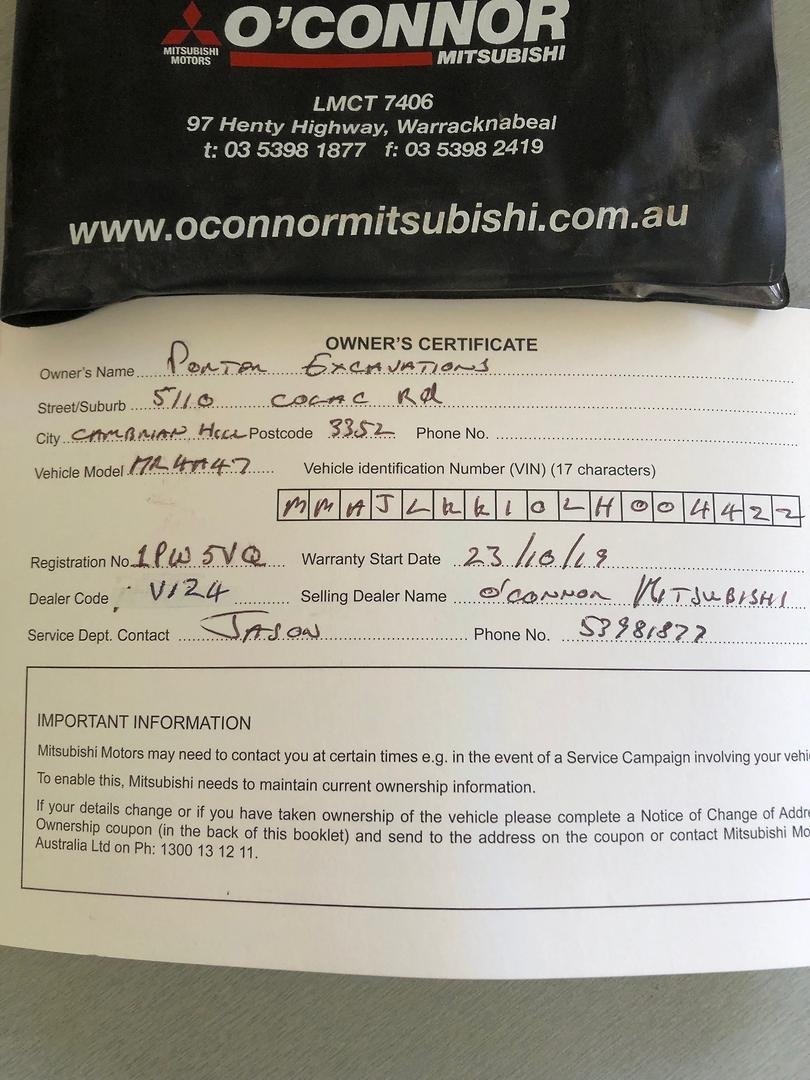 O'CONNOR
MITSUBISHI
MOTORS
MITSUBISHI
LMCT 7406
97 Henty Highway, Warracknabeal
t: 03 5398 1877 f: 03 5398 2419
www.oconnormitsubishi.com.au
OWNER'S CERTIFICATE
Owner's Name PORTER EXCAVATIONS
Street/Suburb 5110 COLAC Rd
City CAMBRIAN HILL Postcode 3352 Phone No.
Vehicle Model MR4A47 Vehicle identification Number (VIN) (17 characters)
MMAJLKK10LH004422
Registration No 1PW5VQ Warranty Start Date 23/10/19
Dealer Code V124 Selling Dealer Name O'CONNOR MITSUBISHI
Service Dept. Contact JASON Phone No. 53981877
IMPORTANT INFORMATION
Mitsubishi Motors may need to contact you at certain times e.g. in the event of a Service Campaign involving your vehi
To enable this, Mitsubishi needs to maintain current ownership information.
If your details change or if you have taken ownership of the vehicle please complete a Notice of Change of Addre
Ownership coupon (in the back of this booklet) and send to the address on the coupon or contact Mitsubishi Mo
Australia Ltd on Ph: 1300 13 12 11.